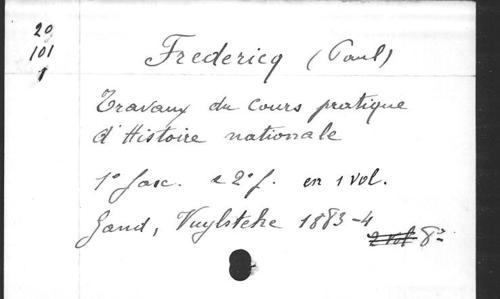 20
101
1
Fredericq (Paul)
Travaux du Cours pratique
d'Histoire nationale
1° fasc. & 2° f. en 1 vol.
Gand, Vuylsteke 1883-4
2 vol 8°